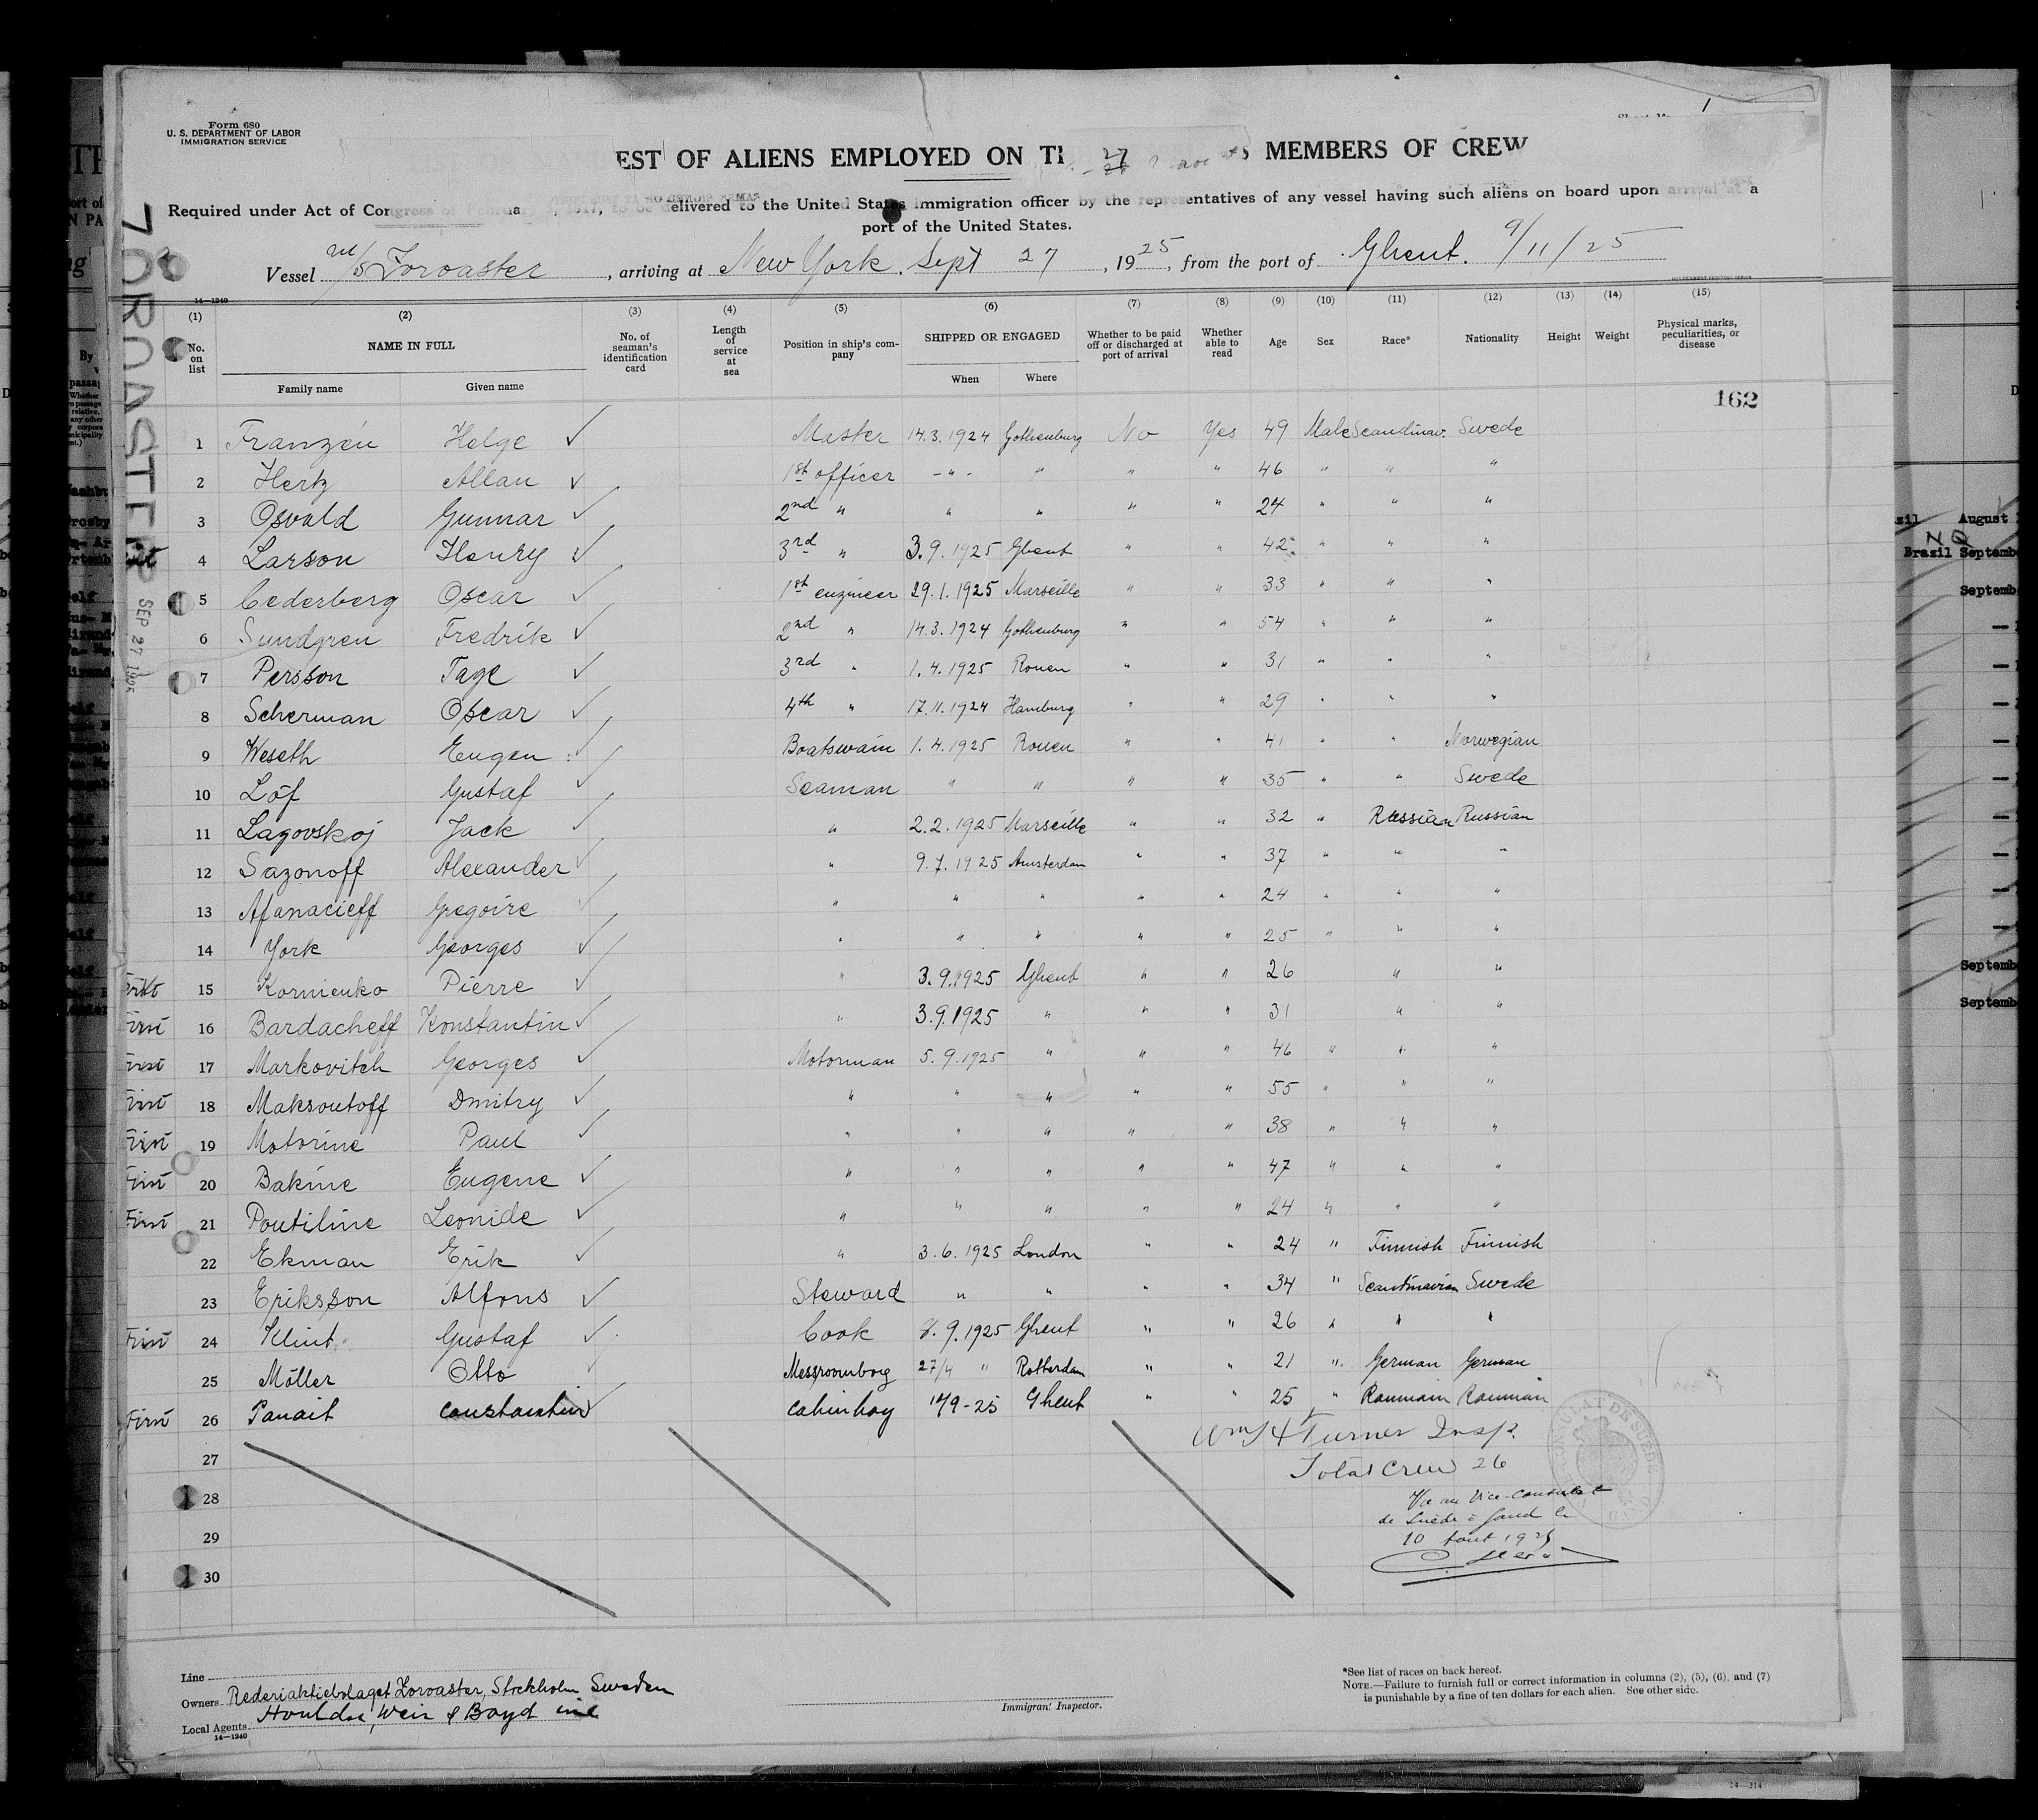 1
Form 680
U. S. DEPARTMENT OF LABOR
IMMIGRATION SERVICE
EST OF ALIENS EMPLOYED ON TH 27 S MEMBERS OF CREW
Required under Act of Congress of February , 1917, to be delivered to the United States immigration officer by the representatives of any vessel having such aliens on board upon arrival at a
port of the United States.
Vessel m/s Zoroaster, arriving at New York. Sept 27, 1925, from the port of Ghent. 9/11/25
ZOROASTER SEP 27 1925
14—1240
(1) (2) (3) (4) (5) (6) (7) (8) (9) (10) (11) (12) (13) (14) (15)
No. on list NAME IN FULL No. of seaman's identification card Length of service at sea Position in ship's company SHIPPED OR ENGAGED Whether to be paid off or discharged at port of arrival Whether able to read Age Sex Race* Nationality Height Weight Physical marks, peculiarities, or disease
Family name Given name When Where
162
1 Franzén Helge ✓ Master 14.3.1924 Gothenburg No Yes 49 Male Scandinav. Swede
2 Hertz Allan ✓ 1st officer -"- " " " 46 " " "
3 Osvald Gunnar ✓ 2nd " " " " " 24 " " "
4 Larson Henry ✓ 3rd " 3.9.1925 Ghent " " 42 " " "
5 Cederberg Oscar ✓ 1st engineer 29.1.1925 Marseille " " 33 " " "
6 Sundgren Fredrik ✓ 2nd " 14.3.1924 Gothenburg " " 54 " " "
7 Persson Tage ✓ 3rd " 1.4.1925 Rouen " " 31 " " "
8 Scherman Oscar ✓ 4th " 17.11.1924 Hamburg " " 29 " " "
9 Weseth Eugen ✓ Boatswain 1.4.1925 Rouen " " 41 " " Norwegian
10 Löf Gustaf ✓ Seaman " " " " 35 " " Swede
11 Lagovskoj Jack ✓ " 2.2.1925 Marseille " " 32 " Russian Russian
12 Sazonoff Alexander ✓ " 9.7.1925 Amsterdam " " 37 " " "
13 Afanacieff Gregoire ✓ " " " " " 24 " " "
14 York Georges ✓ " " " " " 25 " " "
First 15 Kornienko Pierre ✓ " 3.9.1925 Ghent " " 26 " "
First 16 Bardacheff Konstantin ✓ " 3.9.1925 " " " 31 " "
First 17 Markovitch Georges ✓ Motorman 5.9.1925 " " " 46 " " "
First 18 Maksoutoff Dmitry ✓ " " " " " 55 " " "
First 19 Motorine Paul ✓ " " " " " 38 " " "
First 20 Bakine Eugene ✓ " " " " " 47 " " "
First 21 Poutiline Leonide ✓ " " " " " 24 " " "
22 Ekman Erik ✓ " 3.6.1925 London " " 24 " Finnish Finnish
23 Eriksson Alfons ✓ Steward " " " " 34 " Scandinavian Swede
First 24 Klint Gustaf ✓ Cook 8.9.1925 Ghent " " 26 " " "
25 Möller Otto ✓ Messroomboy 27/4 " Rotterdam " " 21 " German German
First 26 Panait Constantin ✓ Cabinboy 10/9-25 Ghent " " 25 " Roumain Roumain
27
28
29
30
Wm H Turner Insp.
Total Crew 26
Vu au Vice-Consulat
de Suède à Gand le
10 Aout 1925
CONSULAT DE SUÈDE
Line
Owners Rederiaktiebolaget Zoroaster, Stockholm Sweden
Local Agents Houlder, Weir & Boyd inc
14—1240
Immigrant Inspector.
*See list of races on back hereof.
NOTE.—Failure to furnish full or correct information in columns (2), (5), (6), and (7)
is punishable by a fine of ten dollars for each alien. See other side.
24—214
zil August
Brazil Septemb
Septemb
Septemb
Septemb